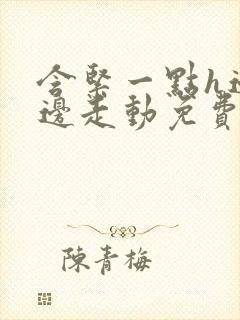 含緊一點h邊
邊走動免費
陳青梅